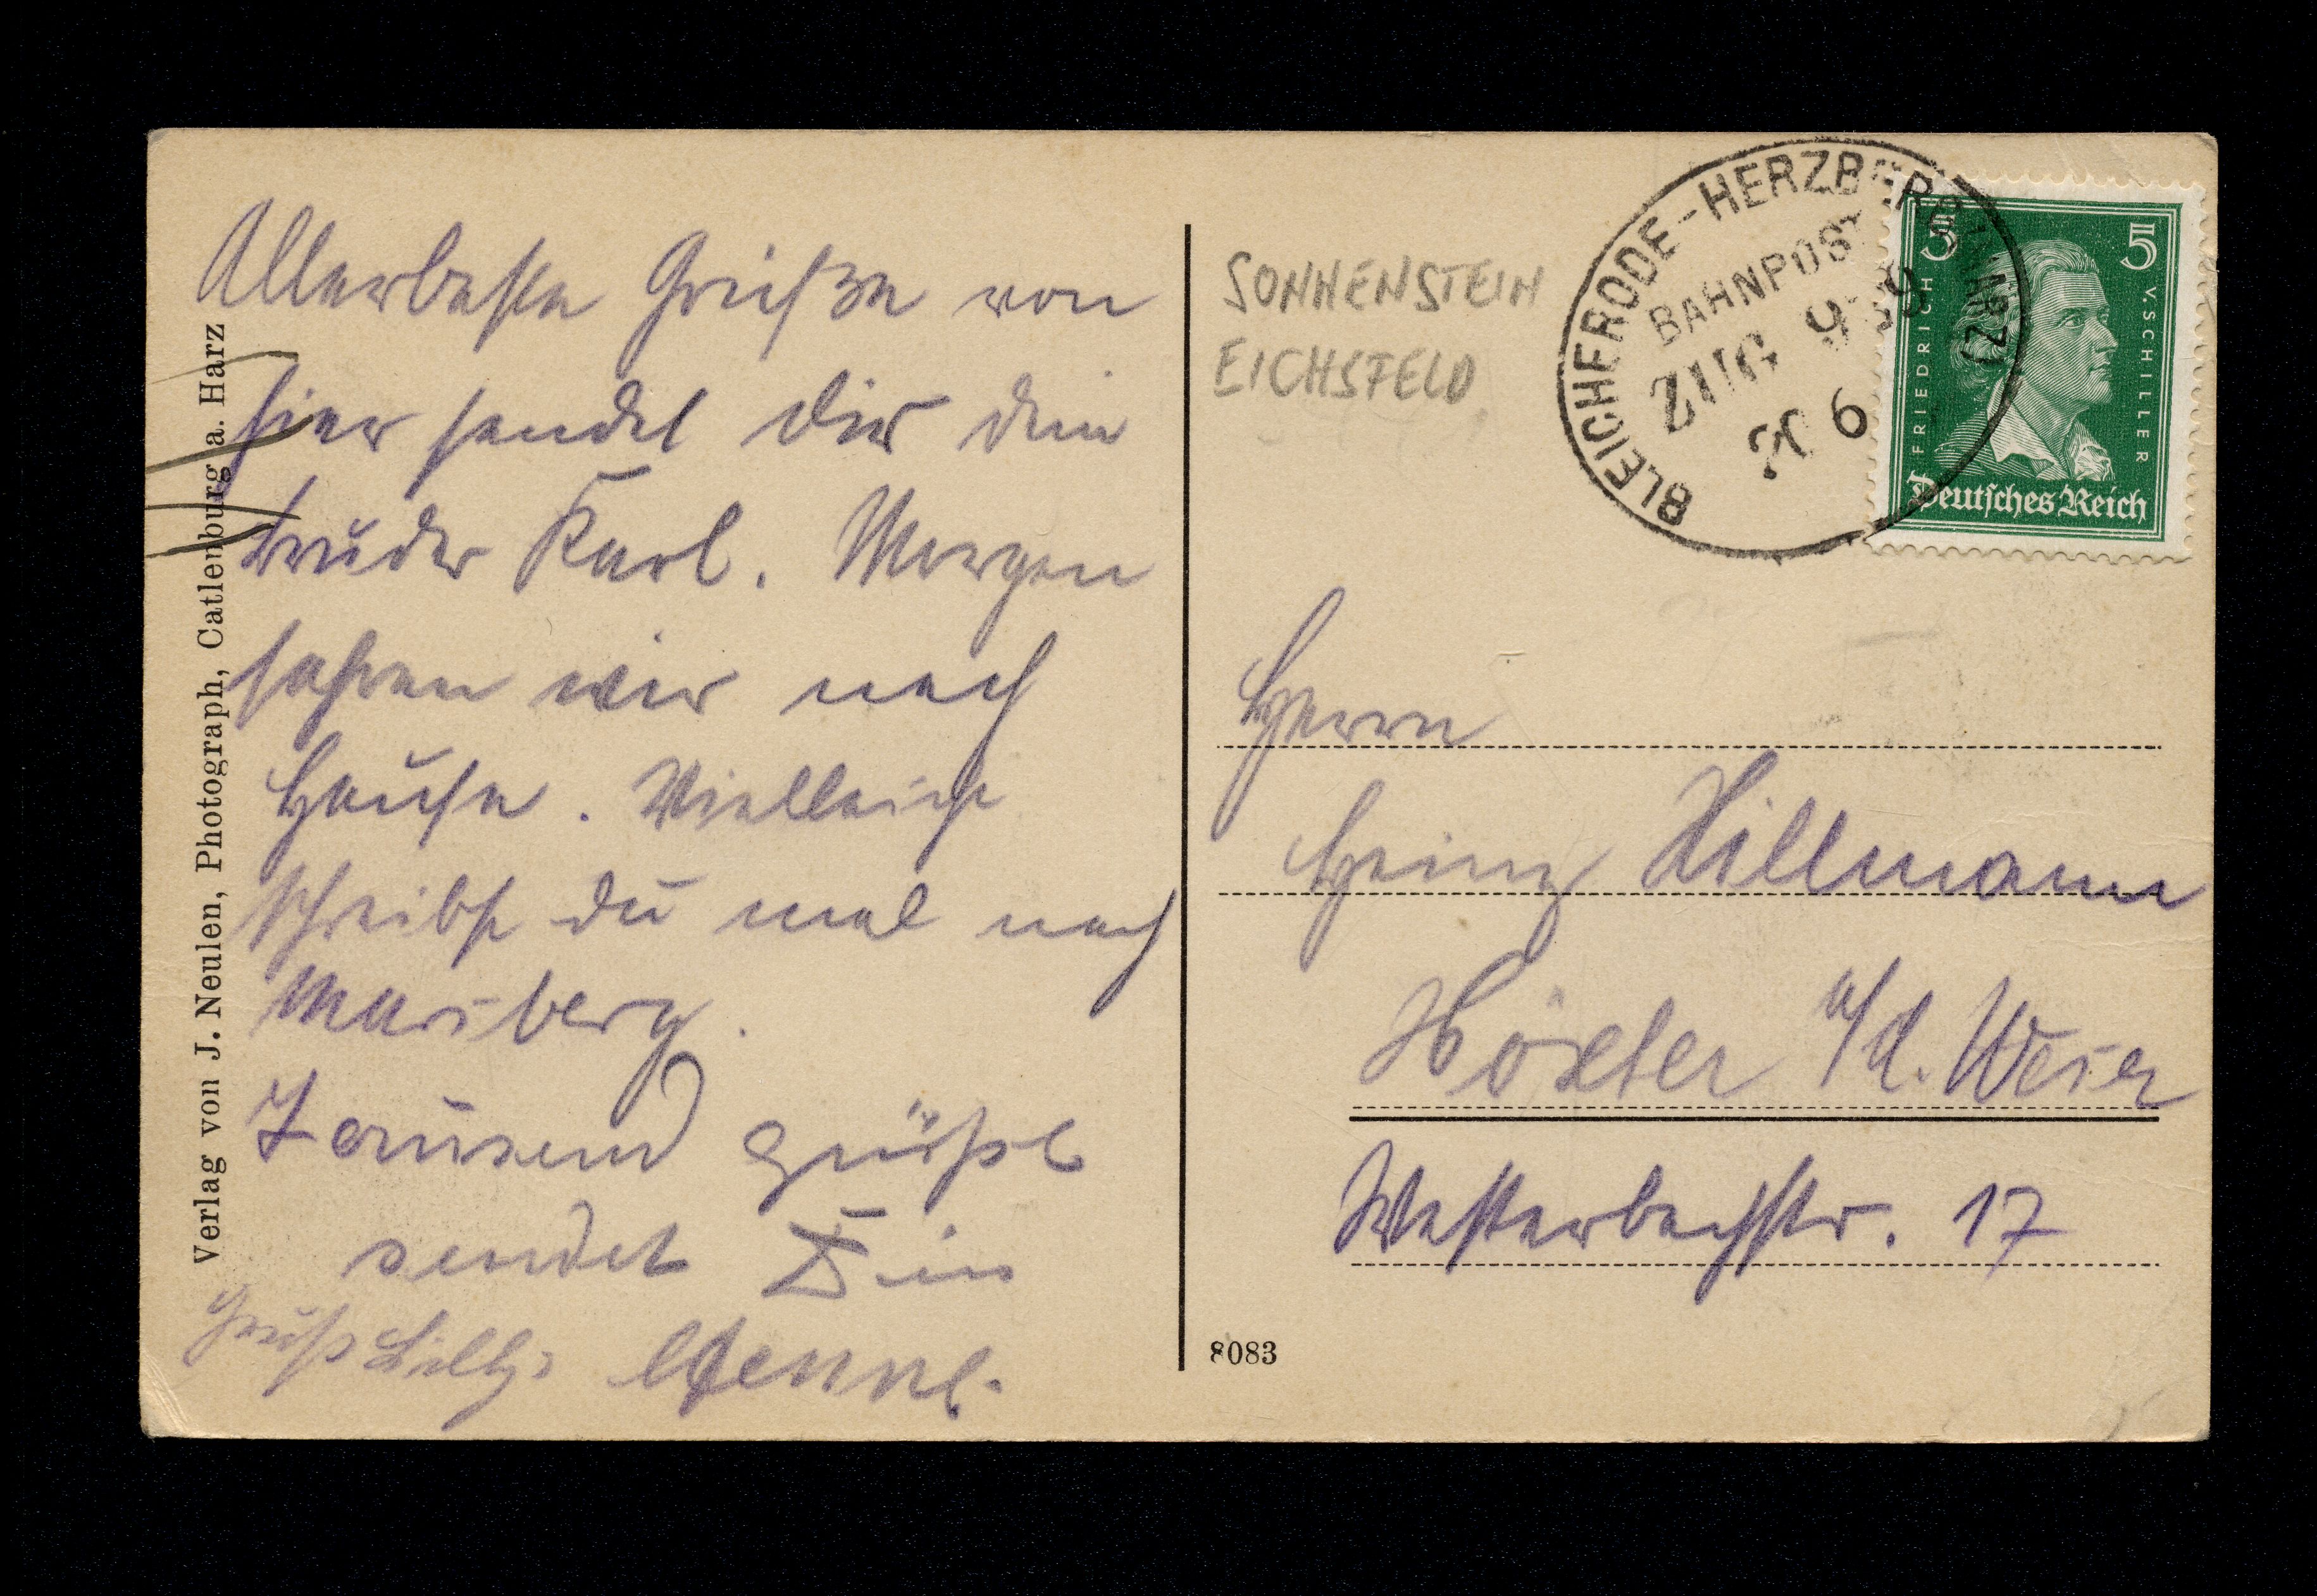 Allerbeste Grüße von
hier sendet dir dein
Bruder Karl. Morgen
fahren wir nach
Hause. Vielleicht
schreibst du mal nach
Marsberg.
Tausend grüße
sendet Dein
Gruß Willy.
Verlag von J. Neulen, Photograph, Catlenburg a. Harz
SONNENSTEIN
EICHSFELD
BLEICHERODE-HERZBERG (HARZ)
BAHNPOST
ZUG 9
20 6
5 5
FRIEDRICH V. SCHILLER
Deutsches Reich
Herrn
Heinz Hillmann
Höxter a/d. Weser
Westerbachstr. 17
8083